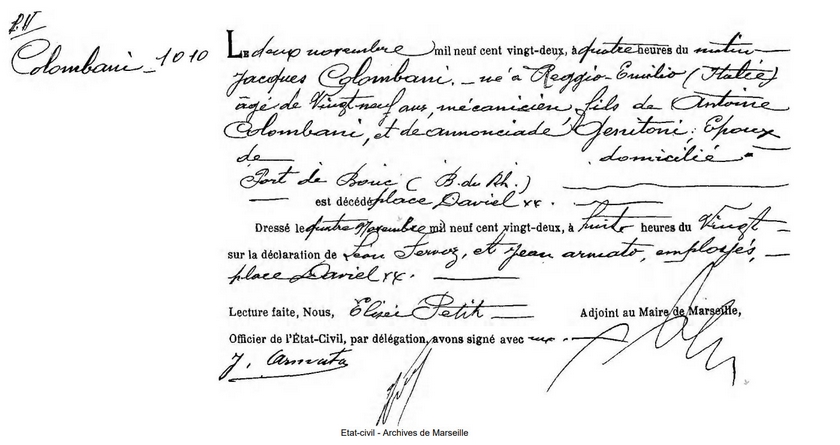 Colombani _ 1010
Le deux novembre mil neuf cent vingt-deux, à quatre heures du matin
Jacques Colombani. _ né à Reggio-Emilio (Italie)
âgé de Vingt neuf ans, mécanicien, fils de Antoine
Colombani, et de annonciade Genitoni; Epoux
de domicilié
Port de Bouc (B. du Rh.)
est décédé place Daviel
Dressé le quatre Novembre mil neuf cent vingt-deux, à huit heures du
sur la déclaration de Léon et Jean armato, employés,
place Daviel
Lecture faite, Nous, Elisée Petit Adjoint au Maire de Marseille,
Officier de l'État-Civil, par délégation, avons signé avec eux.
J. Armato
Etat-civil - Archives de Marseille